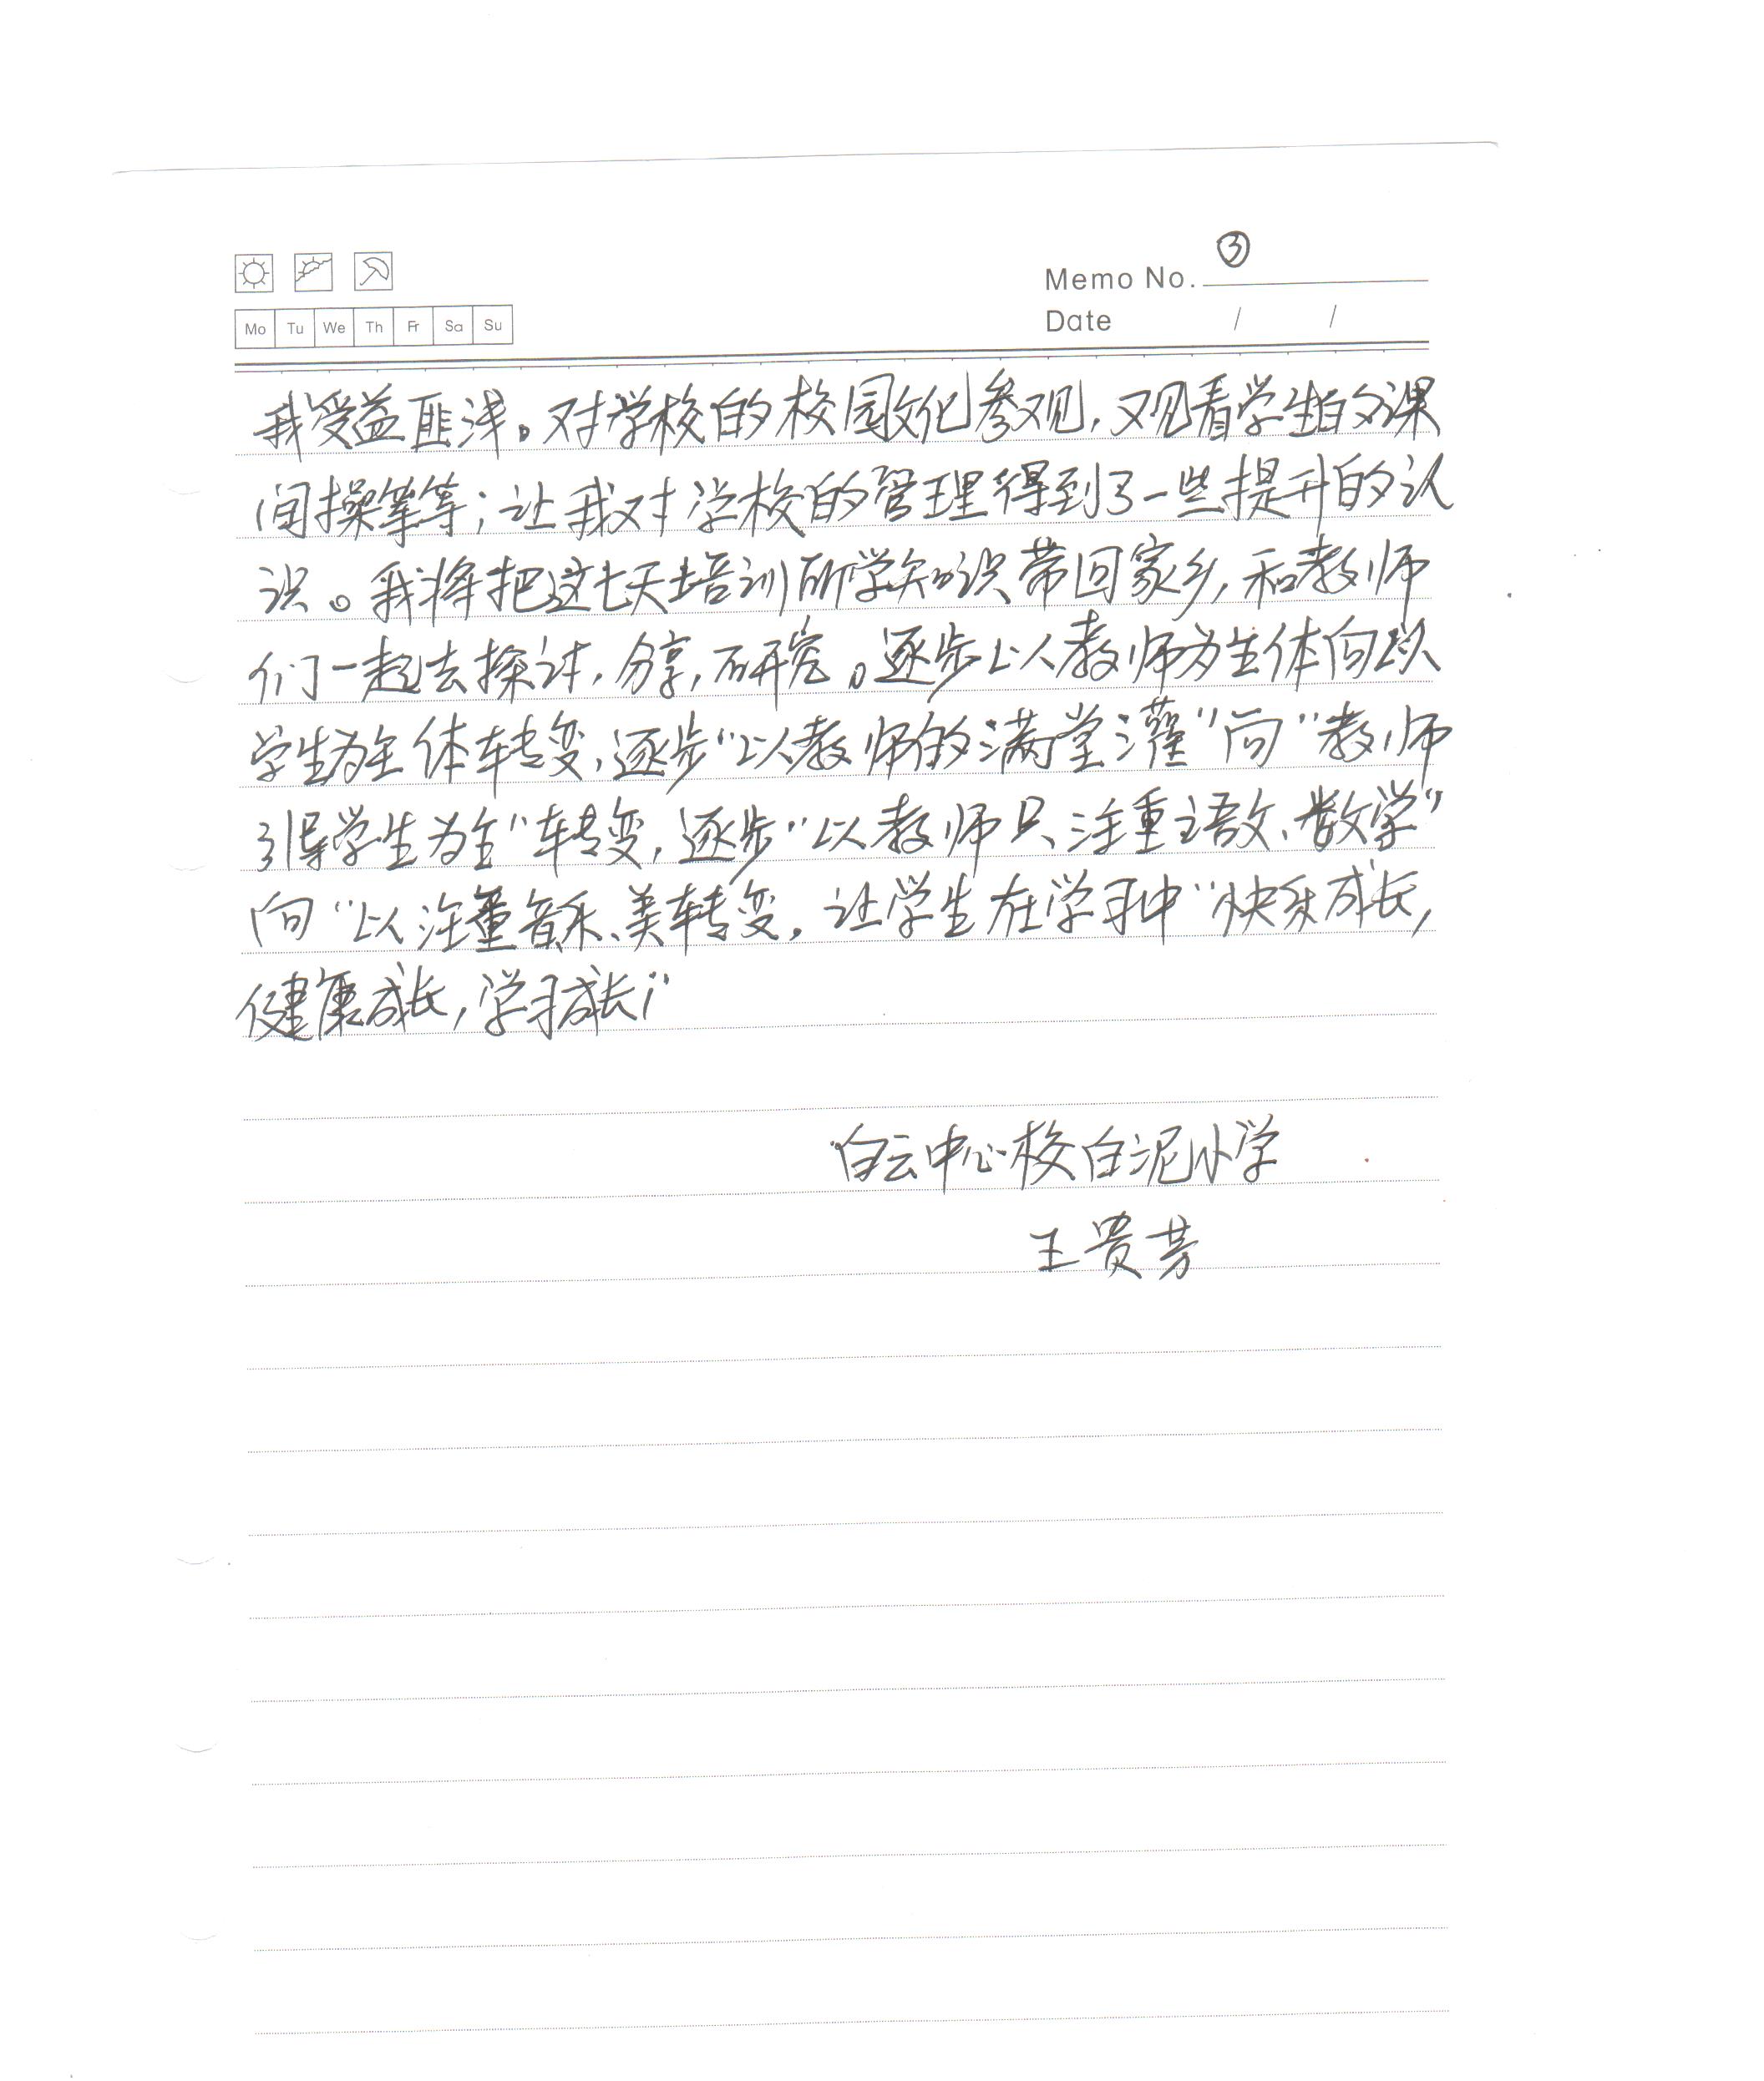 ③
Memo No.
Mo Tu We Th Fr Sa Su
Date / /
我受益匪浅。对学校的校园文化参观,观看学生的课
间操等等;让我对学校的管理得到了一些提升的认
识。我将把这七天培训所学知识带回家乡,和教师
们一起去探讨,分享,研究。逐步以教师为主体向以
学生为主体转变,逐步“以教师的满堂灌”向“教师
引导学生为主”转变,逐步“以教师只注重语文、数学”
向“以注重音乐、美转变,让学生在学习中“快乐成长,
健康成长,学习成长”
白云中心校白泥小学
王贵芳